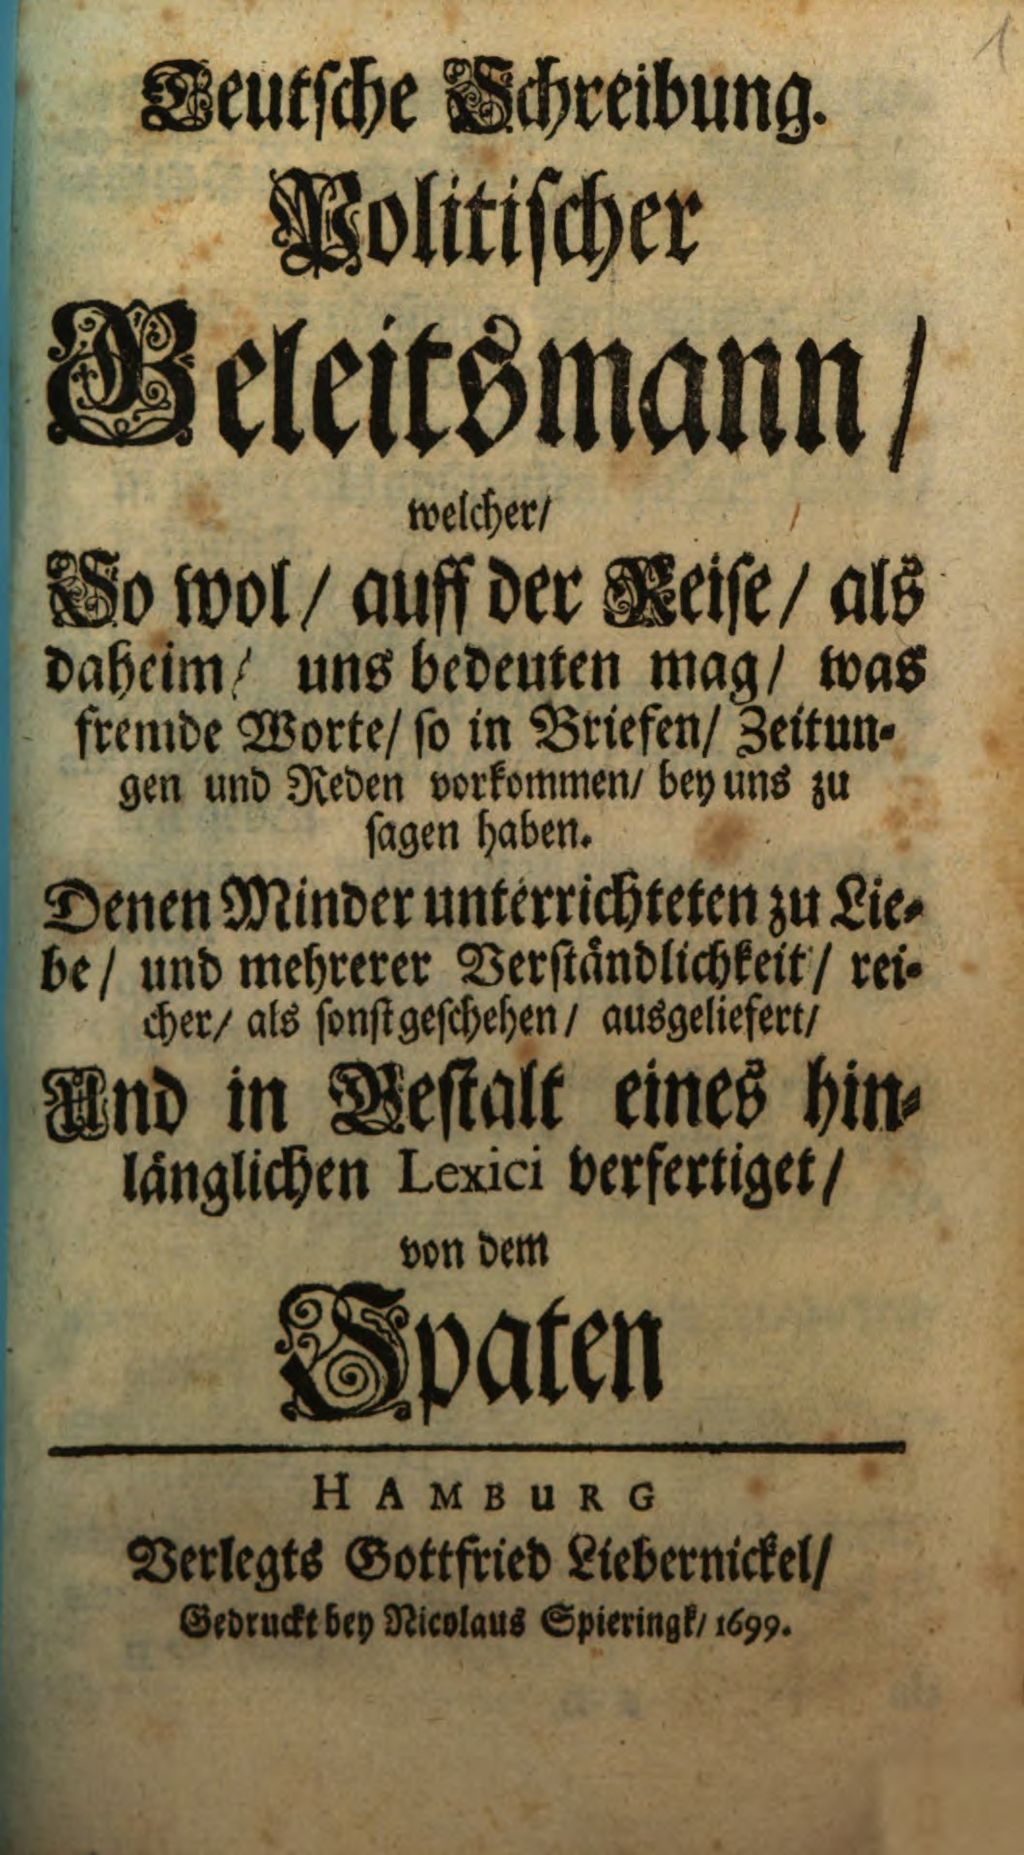 1
Teutsche Schreibung.
Politischer
Geleitsmann/
welcher/
So wol/ auff der Reise/ als
daheim/ uns bedeuten mag/ was
fremde Worte/ so in Briefen/ Zeitun-
gen und Reden vorkommen/ bey uns zu
sagen haben.
Denen Minder unterrichteten zu Lie-
be/ und mehrerer Verständlichkeit/ rei-
cher/ als sonst geschehen/ ausgeliefert/
Und in Gestalt eines hin-
länglichen Lexici verfertiget/
von dem
Spaten
HAMBuRG
Verlegts Gottfried Liebernickel/
Gedruckt bey Nicolaus Spieringk/ 1699.